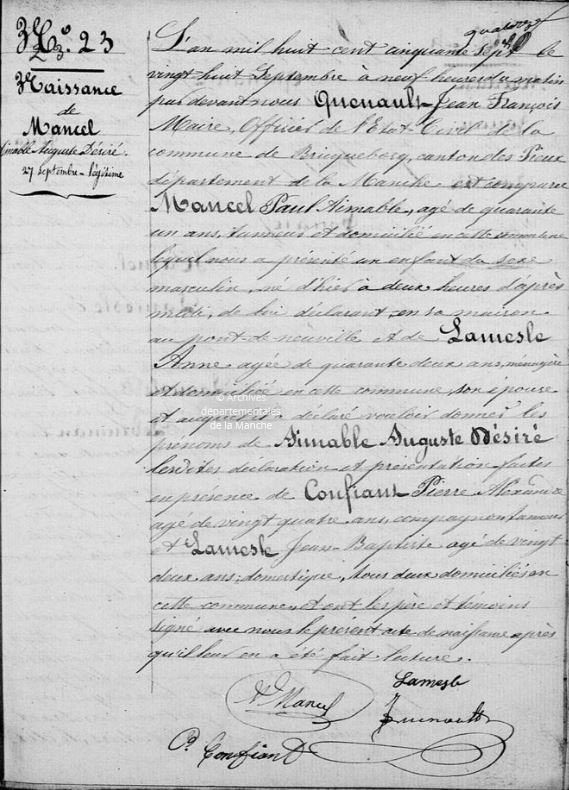 N.° 23
Naissance
de
Mancel
Aimable Auguste Désiré.
27 Septembre - légitime
L'an mil huit cent cinquante sept le
vingt huit Septembre à neuf heures du matin
par devant nous Quenault Jean François
Maire, Officier de l'Etat-Civil de la
commune de Bricquebecq, canton des Pieux
département de la Manche est comparu
Mancel Paul Aimable, agé de quarante
un ans, tanneur et domicilié en cette commune
lequel nous a présenté un enfant du sexe
masculin, né d'hier à deux heures d'après
midi, de lui déclarant, en sa maison
au pont de neuville et de Lamesle
Anne agée de quarante deux ans, ménagère
et domiciliée en cette commune, son épouse
et auquel il a déclaré vouloir donner les
prénoms de Aimable Auguste Désiré
lesdites déclaration et présentation faites
en présence de Confiant Pierre Alexandre
agé de vingt quatre ans, compagnon tanneur
et Lamesle Jean Baptiste agé de vingt
deux ans, domestique, tous deux domiciliés en
cette commune, et ont les père et témoins
signé avec nous le présent acte de naissance après
qu'il leur en a été fait lecture.
Lamesle
Mancel
Quenault
Confiant
© Archives
départementales
de la Manche